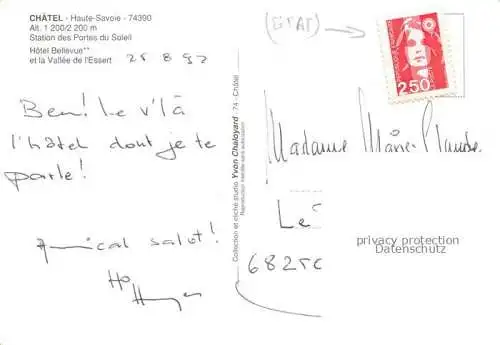 CHÂTEL - Haute-Savoie - 74390
Alt. 1 200/2 200 m
Station des Portes du Soleil
Hôtel Bellevue**
et la Vallée de l'Essert
25 8 92
Ben! Le v'là
l'hôtel dont je te
parle!
Amical salut!
Collection et cliché studio Yvon Chaloyard 74 - Châtel
Reproduction interdite sans autorisation
2,50
Madame Marie-Claude
Le
6825
privacy protection
Datenschutz